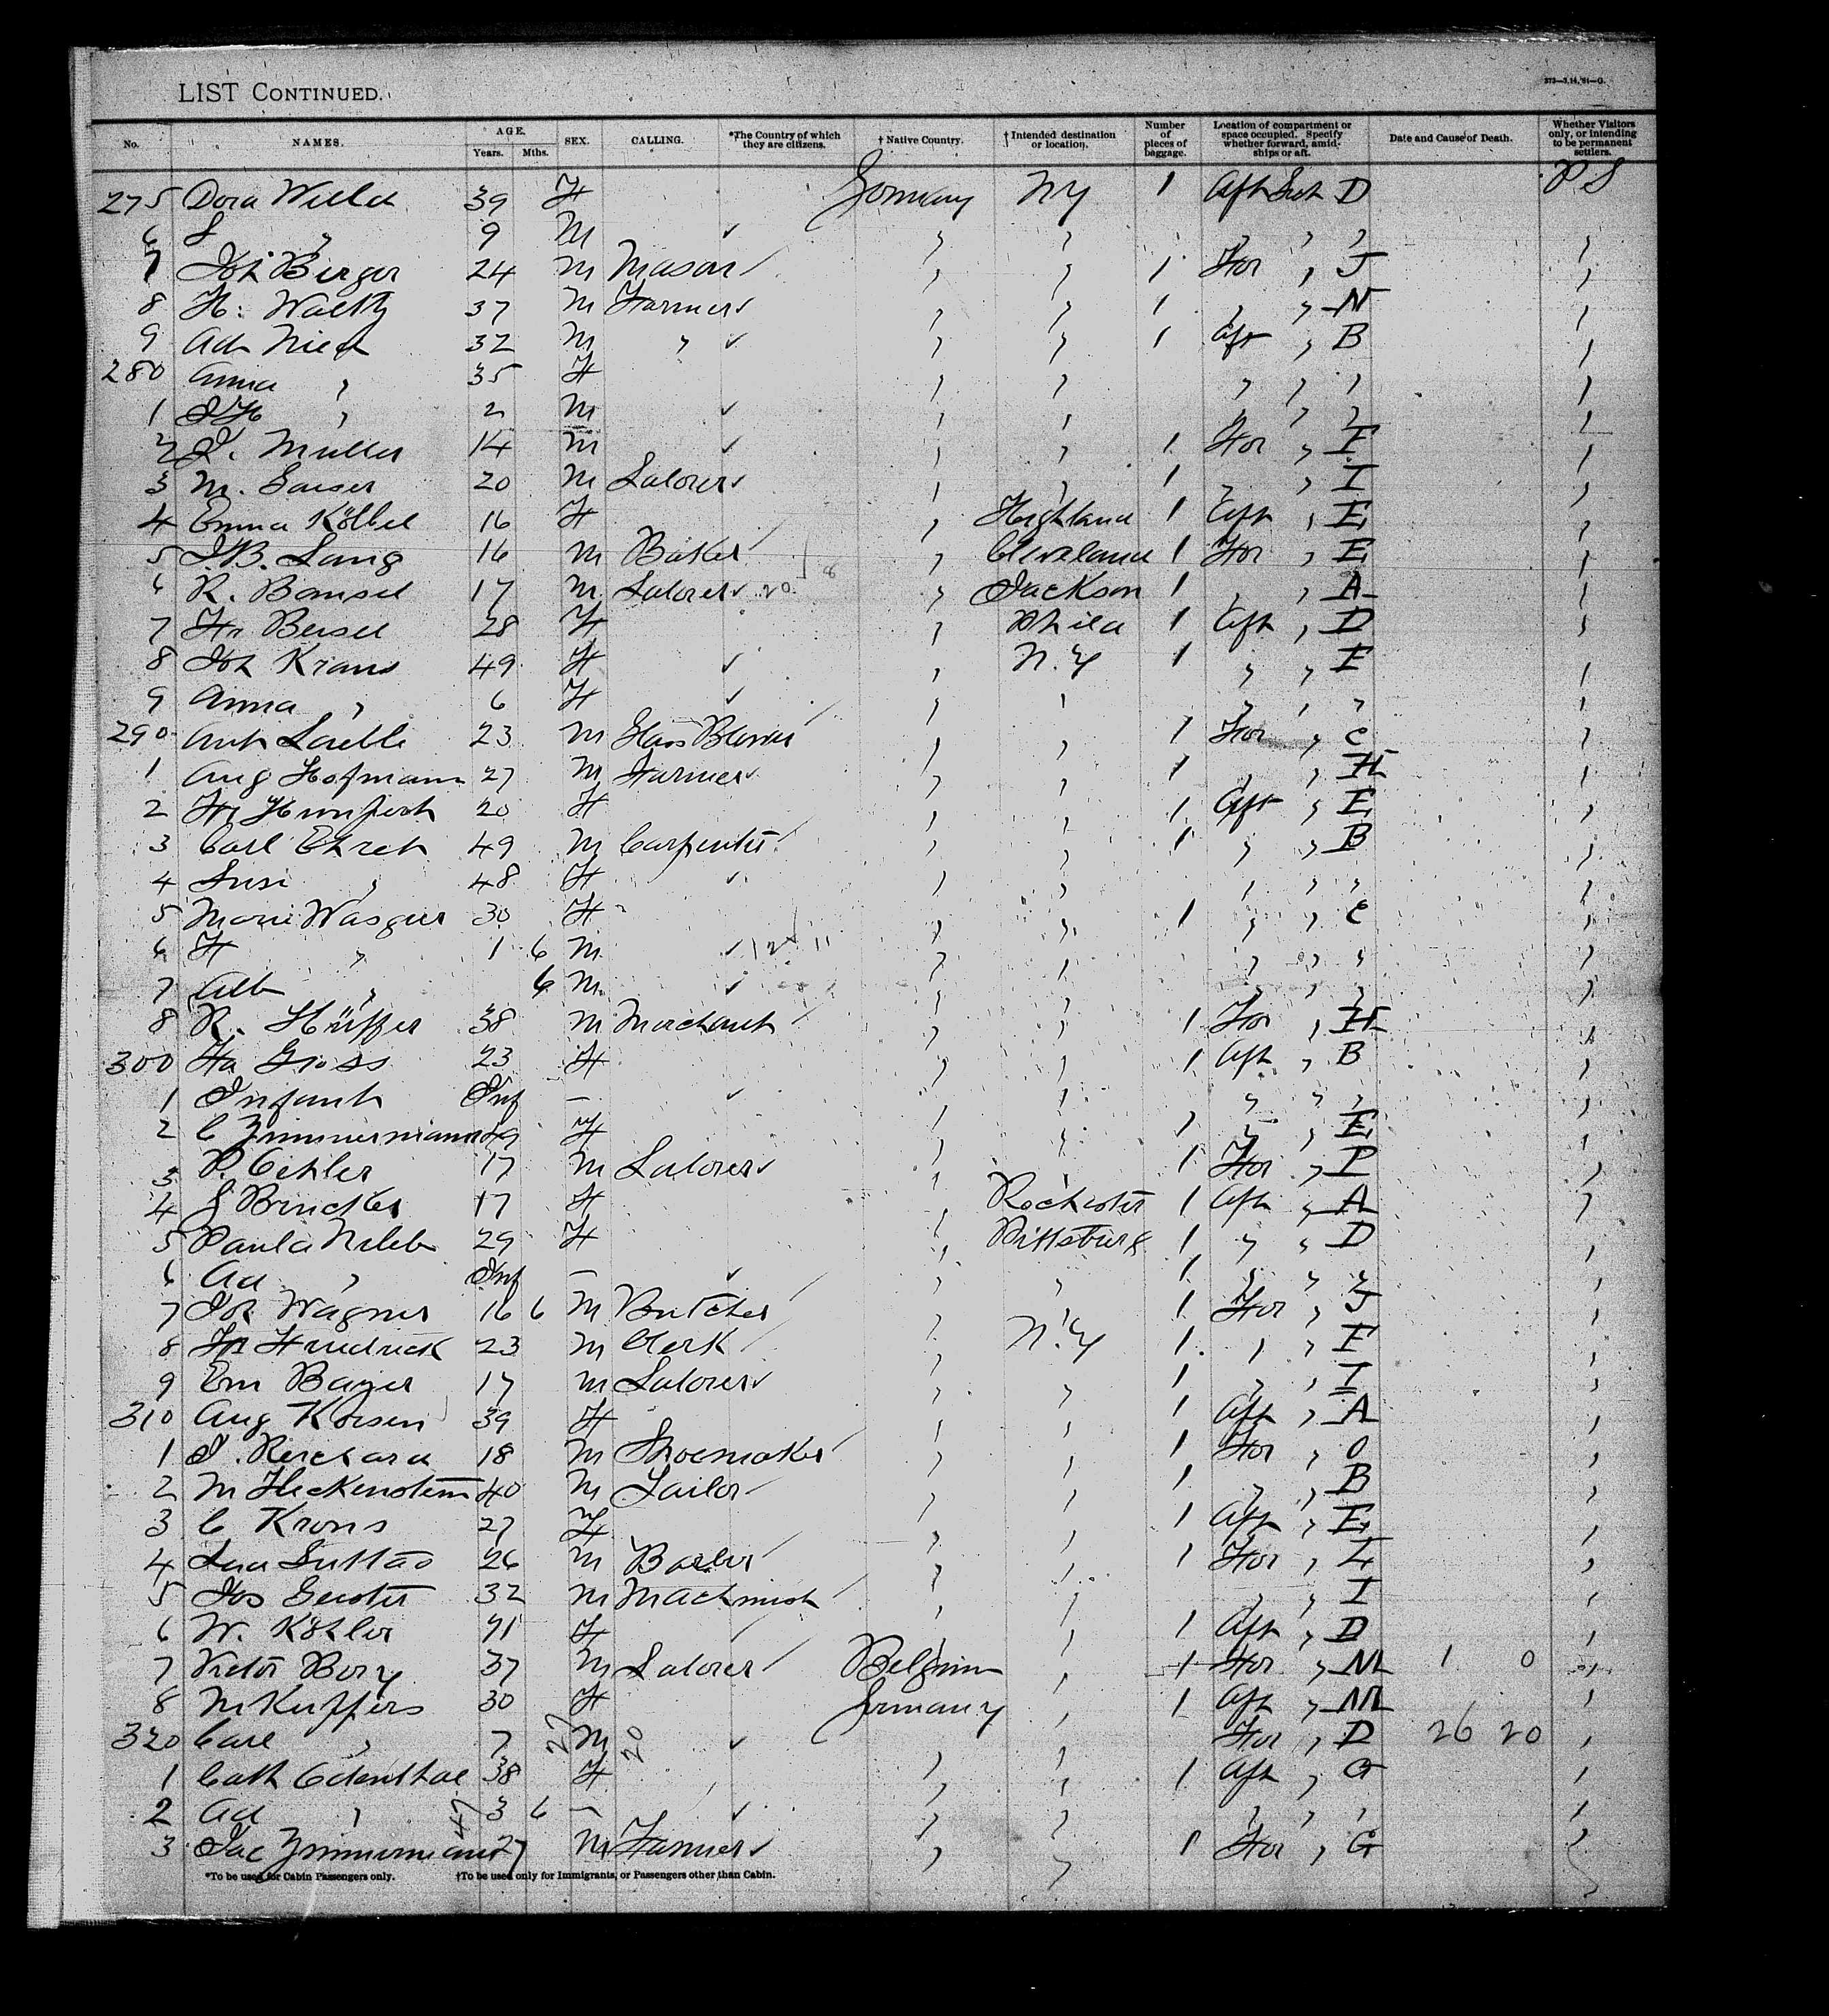 LIST CONTINUED. 373—3,14,'91—G.
No. NAMES. AGE. Years. Mths. SEX. CALLING. *The Country of which they are citizens. † Native Country. † Intended destination or location. Number of pieces of baggage. Location of compartment or space occupied. Specify whether forward, amidships or aft. Date and Cause of Death. Whether Visitors only, or intending to be permanent settlers.
275 Dora 39 F Germany NY 1 Aft D P S
6 S " 9 M ✓ " " " " " "
7 Joh Berger 24 M Mason " " 1 For " J "
8 H. Waelty 37 M Farmer ✓ " " 1 " " N "
9 Ad 32 M " ✓ " " 1 Aft " B "
280 Anna " 35 F " " " " " "
1 J H " 2 M ✓ " " " " " "
2 J. Muller 14 M ✓ " " 1 For " F "
3 M. Saiser 20 M Laborer ✓ " " 1 " " I "
4 Emma Kölbel 16 F " Highland 1 Aft " E "
5 J.B. Lang 16 M Baker " Cleveland 1 For " E "
6 R. Bansel 17 M Laborer ✓ 20 " Jackson 1 " " A "
7 Fr Beisel 28 F " Phila 1 Aft " D "
8 Joh Kraus 49 F ✓ " N.Y 1 " " E "
9 Anna " 6 F ✓ " " " " " "
290 Ant Laible 23 M Glass Blower " " 1 For " C "
1 Aug Hofmann 27 M Farmer ✓ " " 1 " " H "
2 Fr 20 F " " 1 Aft " E "
3 Carl Ehret 49 M Carpenter " " 1 " " B "
4 Susi " 48 F ✓ " " " " " "
5 Marie Wasguer 30 F " " 1 " " C "
6 F " 1 6 M ✓ " " " " " "
7 Alb " 6 M ✓ " " " " " "
8 R. Hüffer 38 M Merchant " " 1 For " H "
300 Fa Gross 23 F " " 1 Aft " B "
1 Infant Inf — ✓ " " " " " "
2 C Zimmermann 49 F " " 1 " " E "
3 P. Oehler 17 M Laborer ✓ " " 1 For " P "
4 S Brucker 17 F " Rochester 1 Aft " A "
5 Paula 29 F " Pittsburg 1 " " D "
6 Ad " Inf — ✓ " " 1 " " " "
7 Joh Wagner 16 6 M Butcher " " 1 For " J "
8 Fr Friedrick 23 M Clerk " N.Y 1 " " F "
9 Em Bayer 17 M Laborer ✓ " " 1 " " I "
310 Aug Korsen 39 F " " 1 Aft " A "
1 J. Reichard 18 M Shoemaker " " 1 For " O "
2 M Heckenstein 40 M Tailor " " 1 " " B "
3 C Krons 27 F " " 1 Aft " E "
4 26 M Barber " " 1 For " L "
5 Jos Gerster 32 M Machinist " " " " I "
6 W. Köhler 71 F " " 1 Aft " D "
7 Victor Bory 37 M Laborer Belgium " 1 For " M 1 0 "
8 M Kuffers 30 F Germany " 1 Aft " M "
320 Carl " 7 27 M 20 ✓ " For " D 26 20 "
1 Cath Odenthal 38 F " " 1 Aft " G "
2 Ad " 47 3 6 — ✓ " " " " " "
3 Jac Zimmermann 27 M Farmer ✓ " " 1 For " G "
*To be used for Cabin Passengers only. †To be used only for Immigrants, or Passengers other than Cabin.